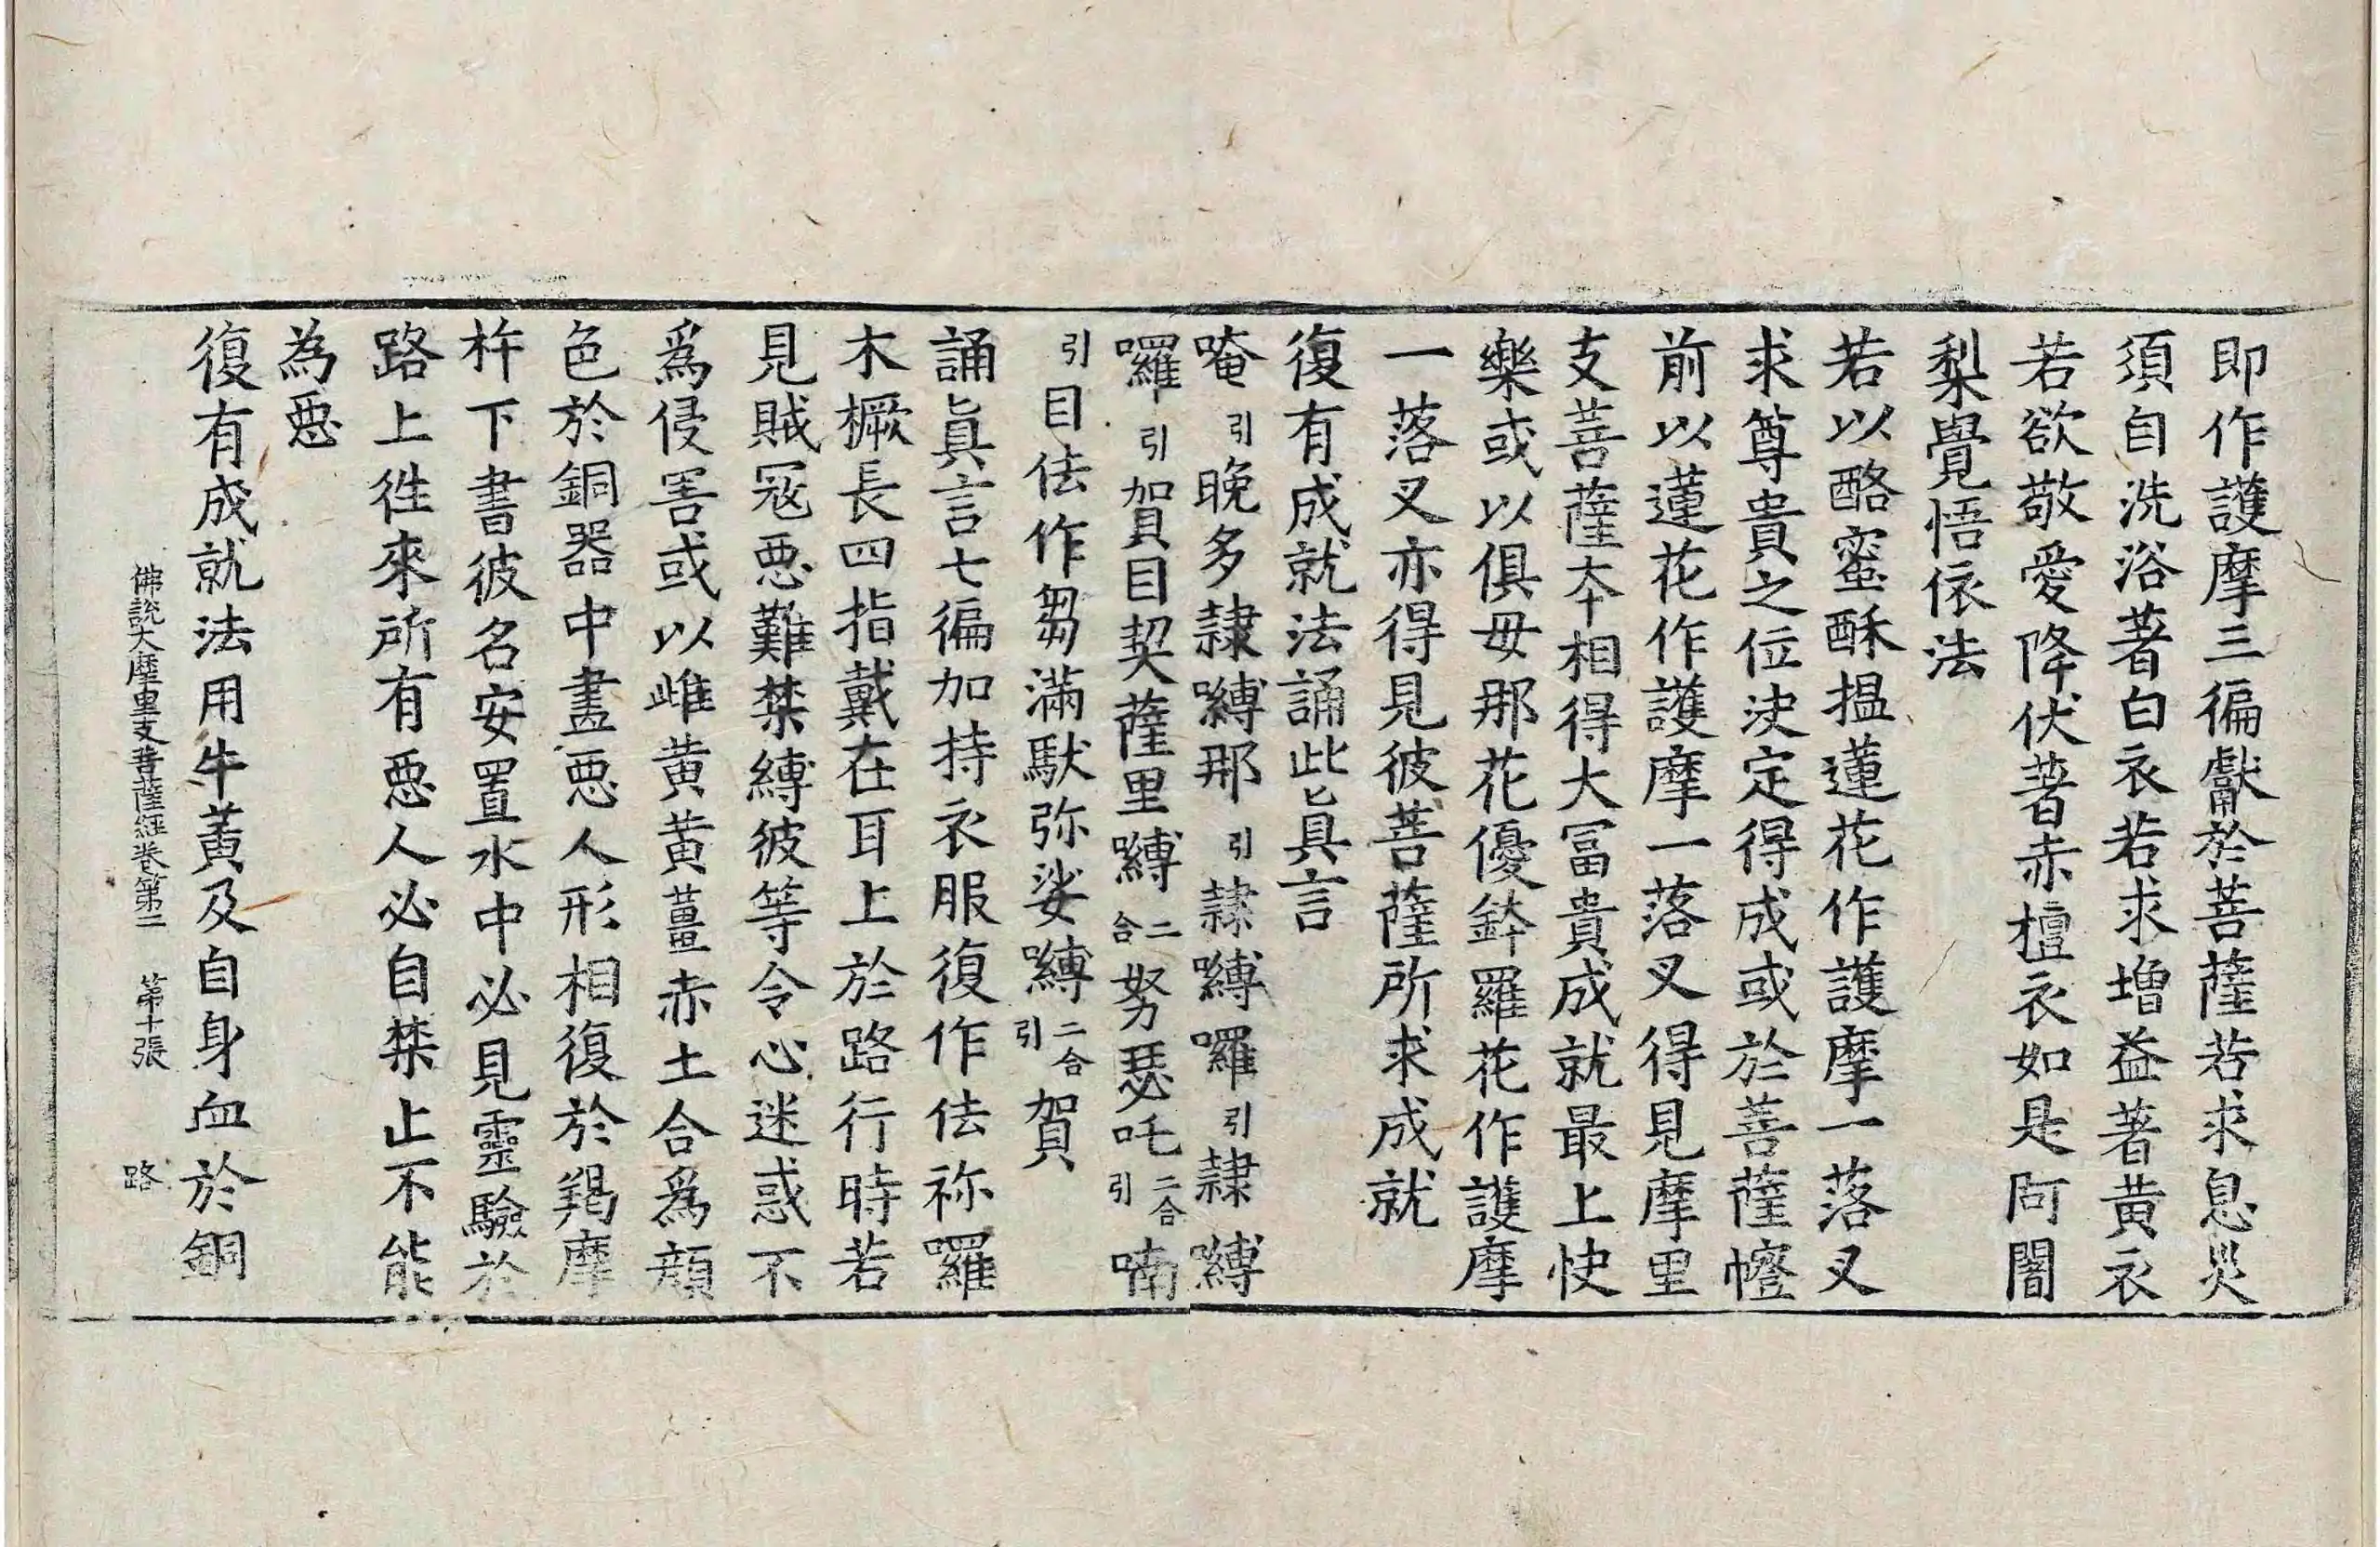 即作護摩三徧獻於菩薩若求息災
須自洗浴著白衣若求增益著黃衣
若欲敬愛降伏著赤檀衣如是阿闍
梨覺悟依法
若以酪蜜酥揾蓮花作護摩一落叉
求尊貴之位決定得成或於菩薩㡧
前以蓮花作護摩一落叉得見摩里
支菩薩本相得大冨貴成就最上快
樂或以俱毋那花優鉢羅花作護摩
一落叉亦得見彼菩薩所求成就
復有成就法誦此眞言
唵引晚多隷嚩那引隷嚩囉引隷嚩
囉引賀目契薩里嚩二合努瑟吒二合引喃
引目佉作芻滿馱弥娑嚩二合引賀
誦眞言七徧加持衣服復作佉祢囉
木橛長四指戴在耳上於路行時若
見賊冦惡難禁縛彼等令心迷惑不
爲侵害或以雌黃黃薑赤土合爲顔
色於銅器中畫惡人形相復於羯摩
杵下書彼名安置水中必見靈驗於
路上徃來所有惡人必自禁止不能
為惡
復有成就法用牛黃及自身血於銅
佛說大摩里支菩薩經卷第二 第十張 路